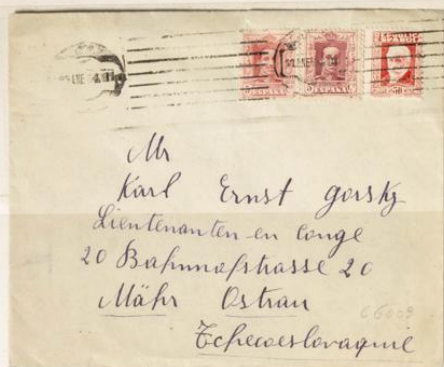 ESPAÑA
Mr
Karl Ernst Gorsky
Lieutenanten en Conge
20 Bahnhofstrasse 20
Mähr Ostrau
Tchecoeslovaquie